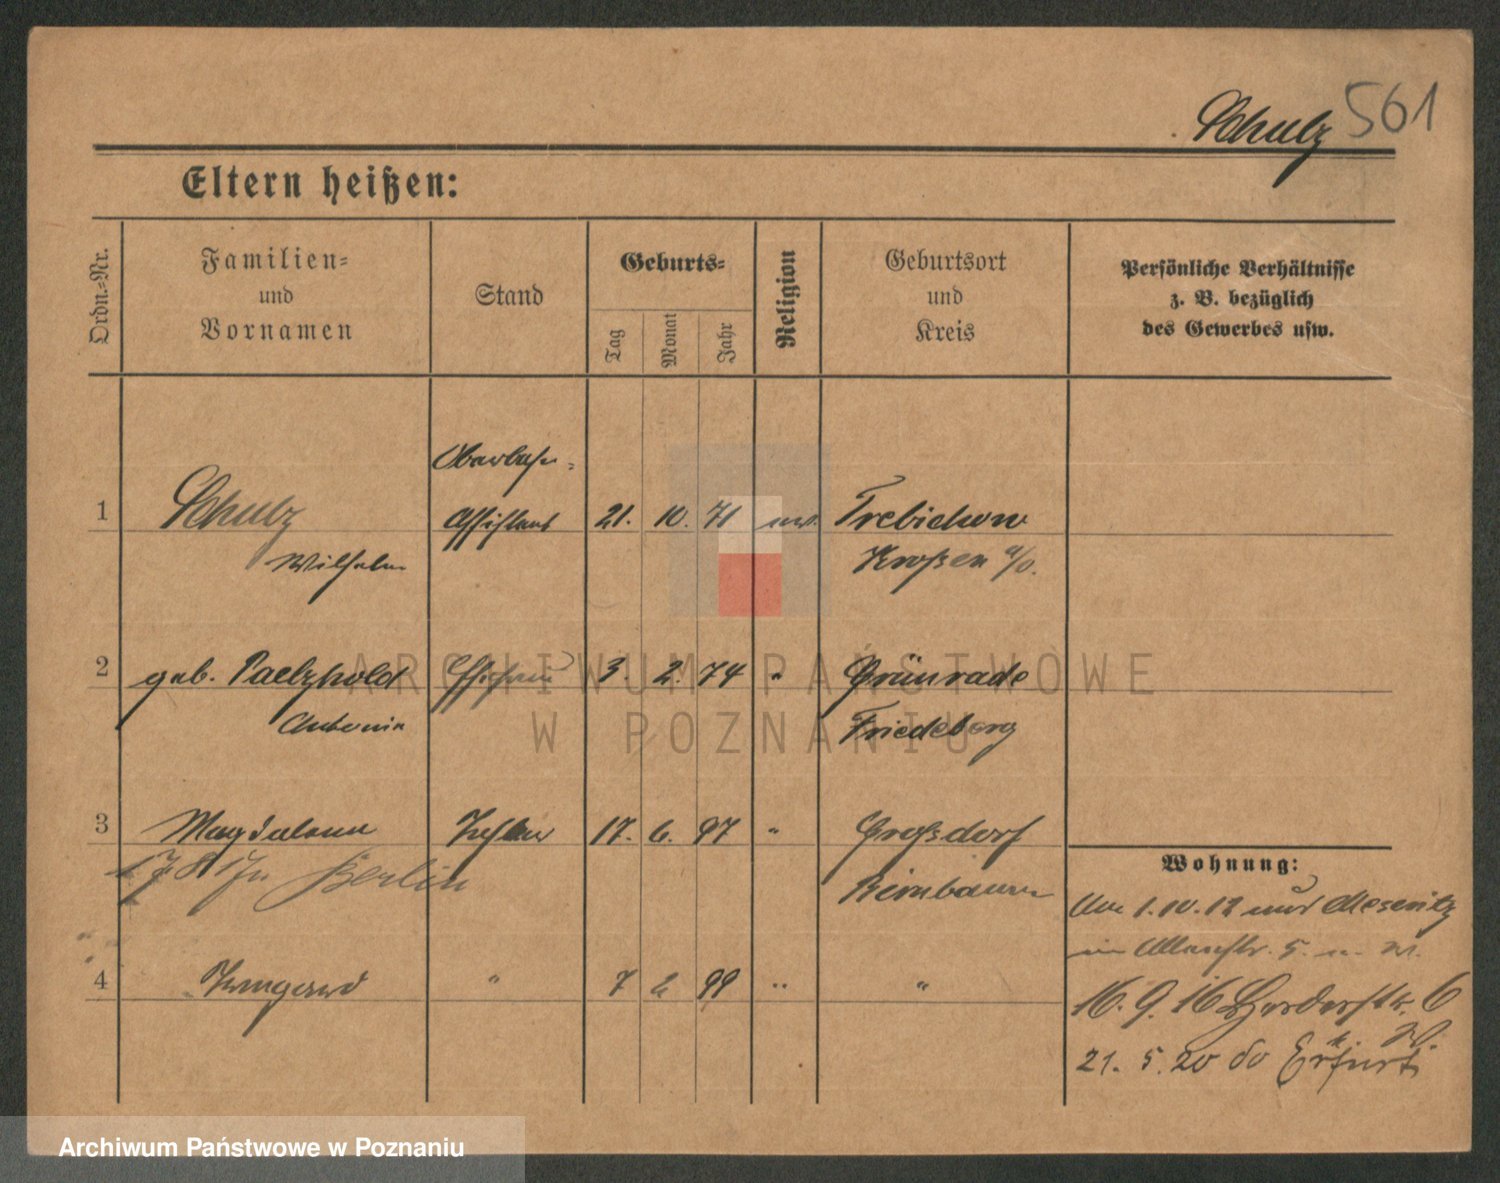 Schulz 561
Eltern heißen:
Ordn.-Nr.
Familien-
und
Vornamen
Stand
Geburts-
Tag
Monat
Jahr
Religion
Geburtsort
und
Kreis
Persönliche Verhältnisse
z. B. bezüglich
des Gewerbes usw.
Oberbahn-
1 Schulz Assistent 21. 10. 71 Trebichow
Wilhelm Kroßen a/O.
2 geb. Paetzhold Ehefrau 3. 2. 74 " Grünrade
Antonia Friedeberg
3 Magdalena Tochter 17. 6. 97 " Großdorf
Berlin Birnbaum
Wohnung:
1.10.12 und Meseritz
5.
4 Irmgard " 7 2 99 " "
16. 9. 16 Herderstr. 6
21. 5. 20 do Erfurt
ARCHIWUM PAŃSTWOWE
W POZNANIU
Archiwum Państwowe w Poznaniu